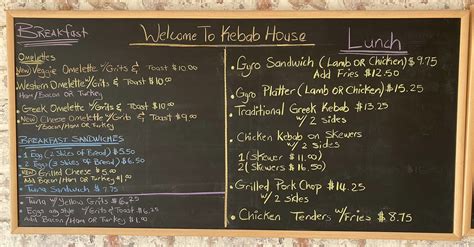 Breakfast
Welcome To Kebab House
Lunch
Omelettes
New Veggie Omelette w/Grits & Toast $10.00
Western Omelette w/Grits & Toast $10.00
Ham/Bacon OR Turkey
Greek Omelette w/Grits & Toast $10.00
New Cheese Omelette w/Grits & Toast $9.00
w/Bacon/Ham OR Turkey
Breakfast Sandwiches
1 Egg (2 Slices of Bread) $5.50
2 Eggs (3 Slices of Bread) $6.50
New Grilled Cheese $5.00
Add Bacon/Ham OR Turkey $1.00
Tuna Sandwich $7.75
Tuna w/Yellow Grits $6.25
Eggs any style w/Grits & Toast $6.25
Add Bacon/Ham OR Turkey $1.00
Gyro Sandwich (Lamb OR Chicken) $9.75
Add Fries $12.50
Gyro Platter (Lamb OR Chicken) $15.25
Traditional Greek Kebab $13.25
w/ 2 sides
Chicken Kebab on Skewers
w/ 2 sides
1 (Skewer $11.00)
2 (Skewers $16.50)
Grilled Pork Chop $14.25
w/ 2 sides
Chicken Tenders w/Fries $8.75